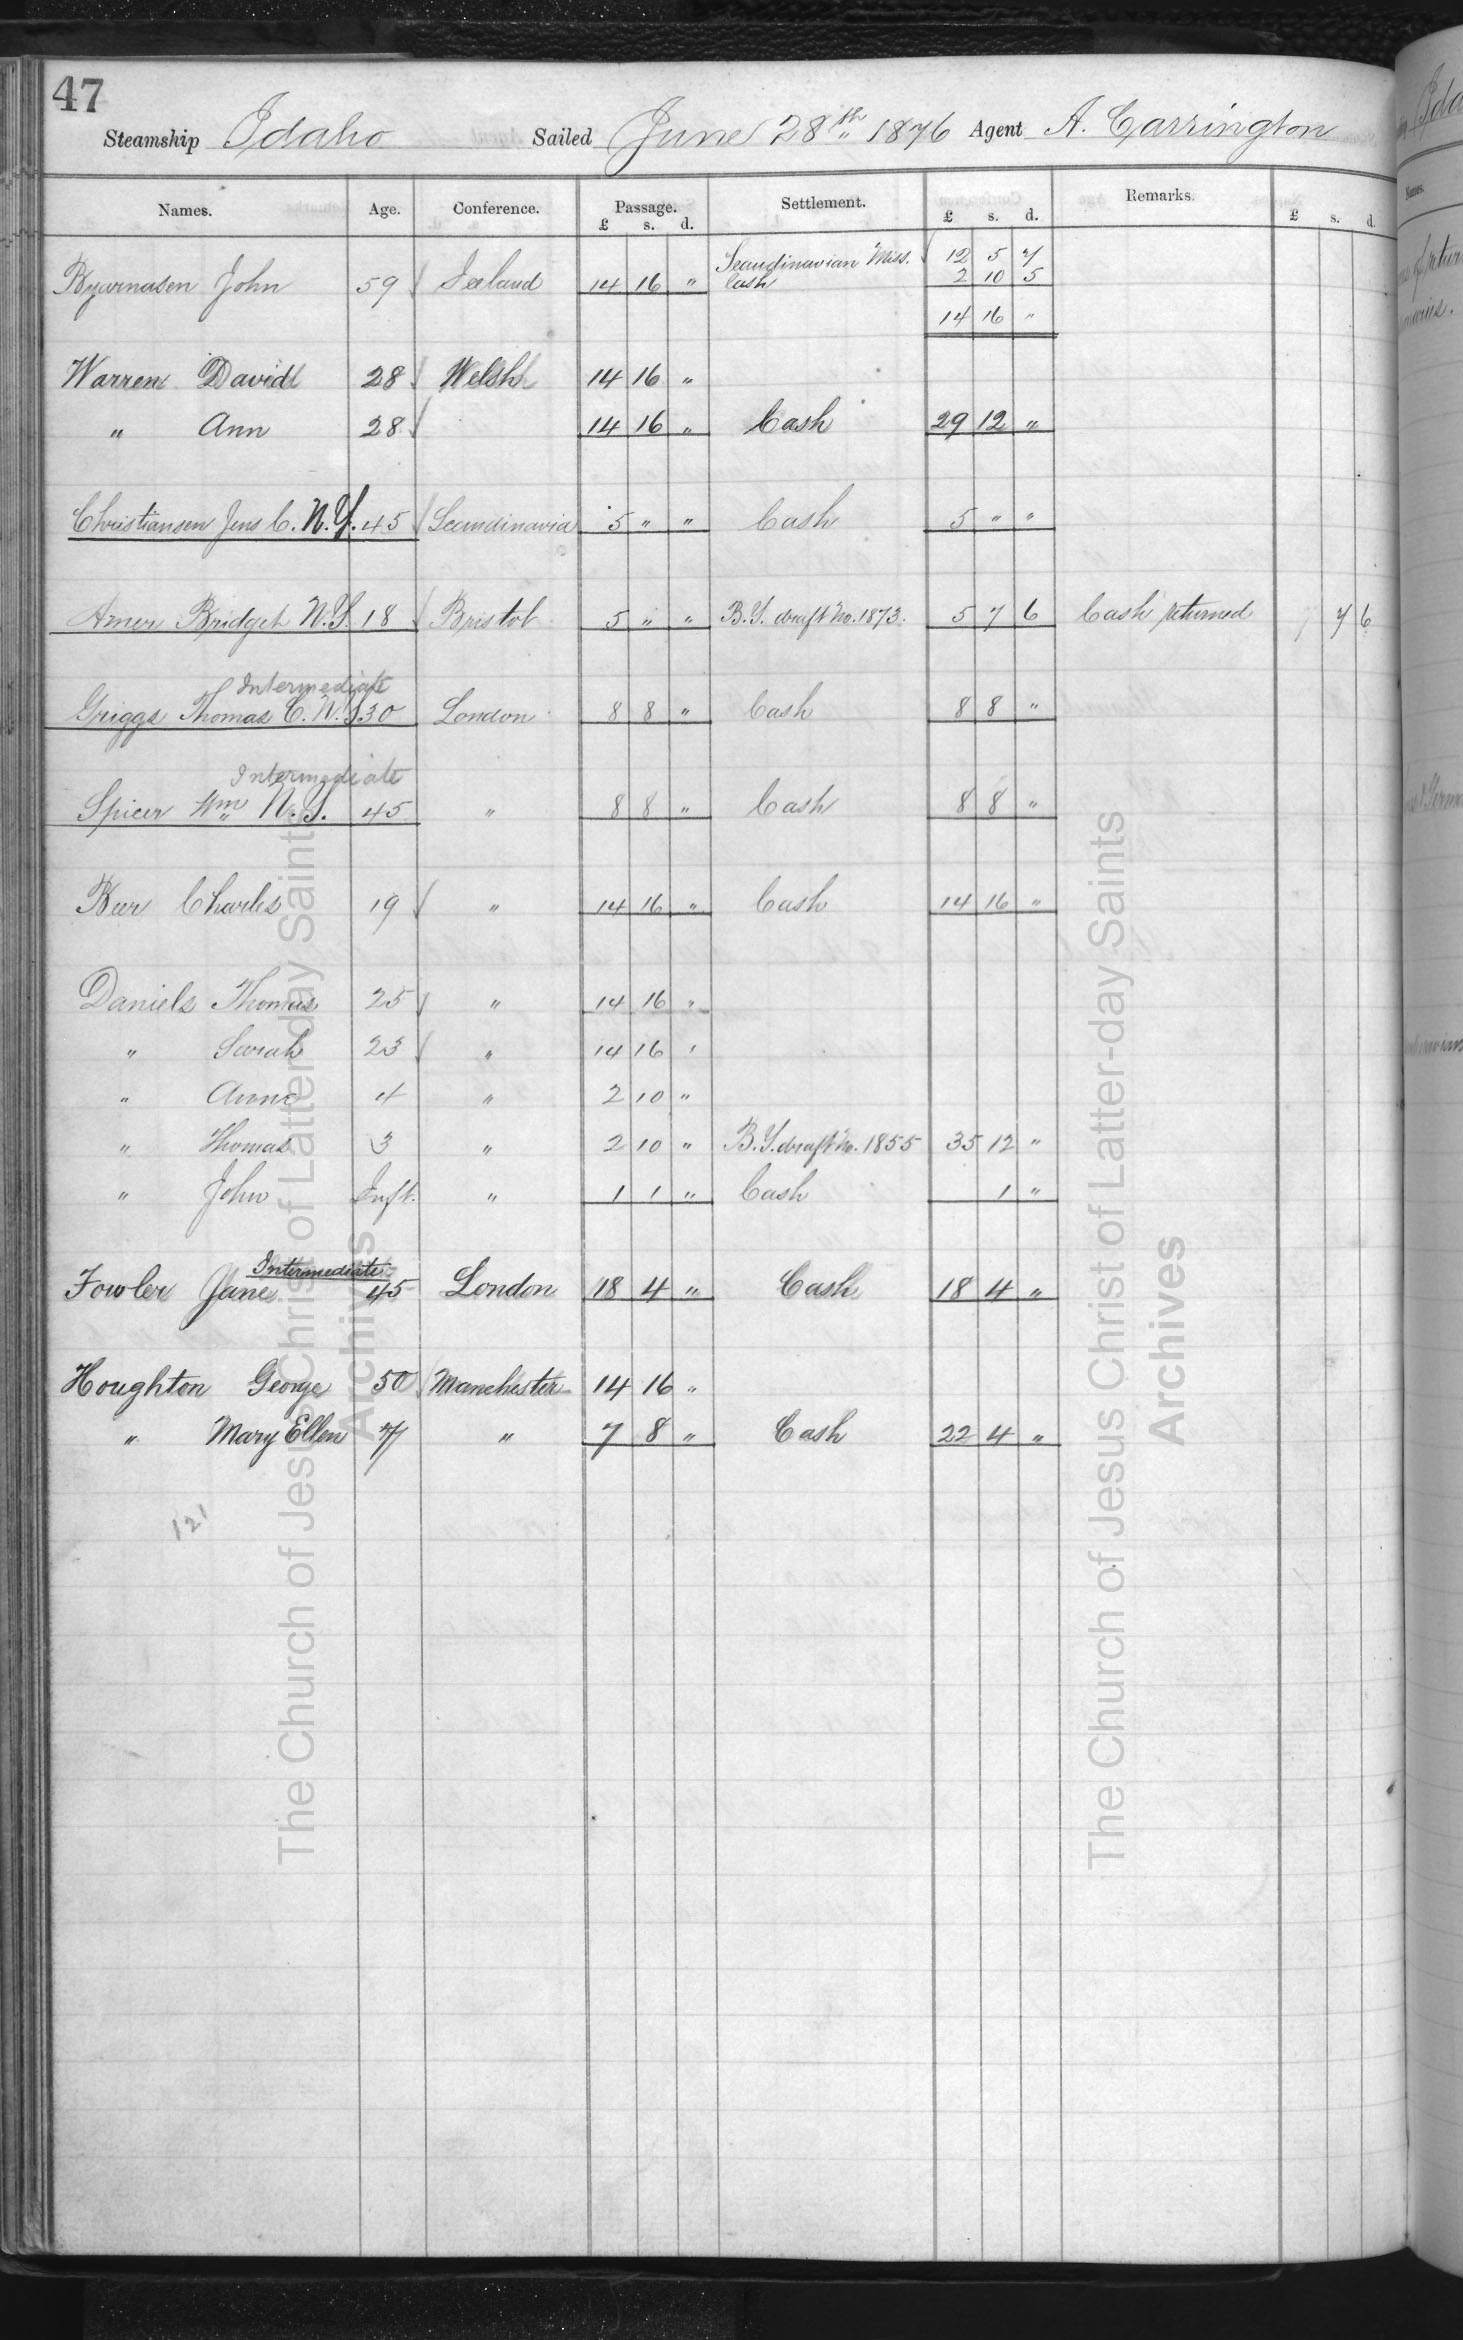 47
Steamship Idaho Sailed June 28th 1876 Agent A. Carrington
Names. Age. Conference. Passage. Settlement. Remarks.
£ s. d. £ s. d. £ s. d.
Scandinavian Miss. 12 5 7
Byarnasen John 59 Iceland 14 16 " Cash 2 10 5
14 16 "
Warren David 28 Welsh 14 16 "
" Ann 28 14 16 " Cash 29 12 "
Christiansen Jens C. N.Y. 45 Scandinavia 5 " " Cash 5 " "
Bridget N.Y. 18 Bristol 5 " " B.Y. draft No. 1873. 5 7 6 Cash returned 7 6
Intermediate
Griggs Thomas C. N.Y. 30 London 8 8 " Cash 8 8 "
Intermediate
Spicer Wm N.Y. 45 " 8 8 " Cash 8 8 "
Charles 19 " 14 16 " Cash 14 16 "
Daniels Thomas 25 " 14 16 "
" Sarah 23 " 14 16 "
" Anne 4 " 2 10 "
" Thomas 3 " 2 10 " B.Y. draft No. 1855 35 12 "
" John Inft. " 1 1 " Cash 1 "
Intermediate
Fowler Jane 45 London 18 4 " Cash 18 4 "
Houghton George 50 Manchester 14 16 "
" Mary Ellen 7 " 7 8 " Cash 22 4 "
121
The Church of Jesus Christ of Latter-day Saints
Archives
The Church of Jesus Christ of Latter-day Saints
Archives